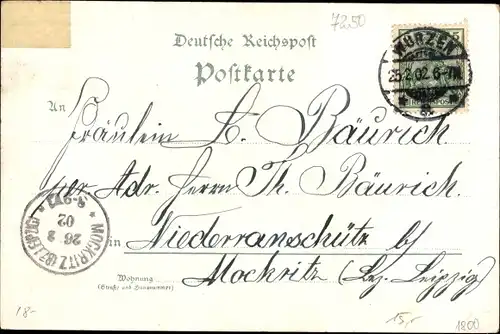 7250
Deutsche Reichspost
Postkarte
WURZEN
25.2.02 6-7N.
An Fräulein L. Bäurich
per Adr. Herrn Th. Bäurich.
in Niederranschütz b/
Mockritz (Bz. Leipzig)
Wohnung
(Straße und Hausnummer)
MOCKRITZ (BZ. LEIPZIG)
26 2
02
8-9V
18-
15,-
1200